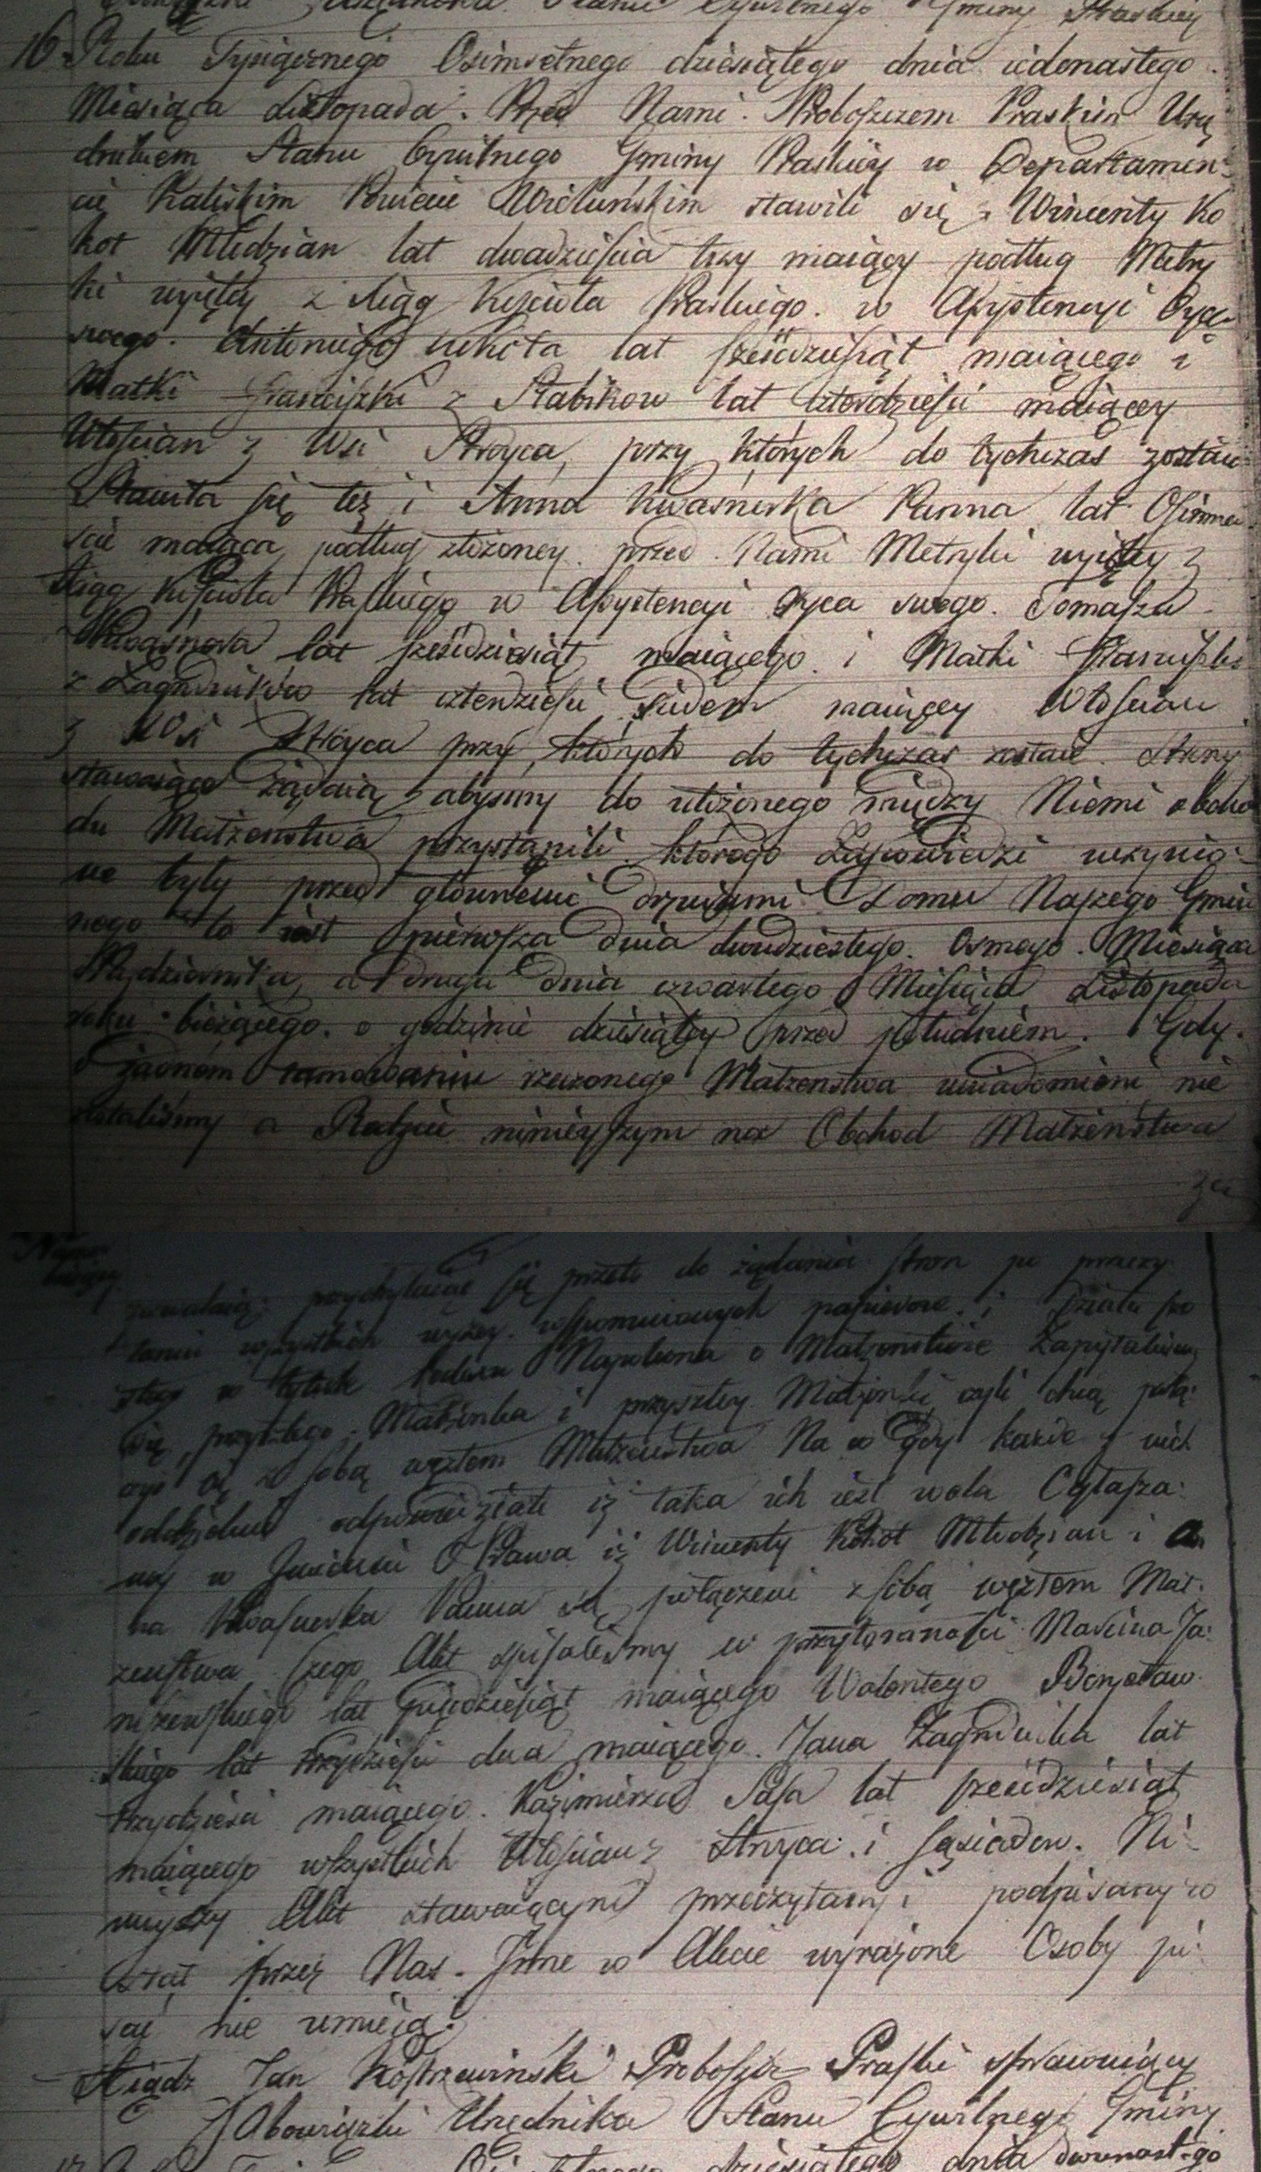 Urzędnika Stanu Cywilnego Gminy Praskiey
16. Roku Tysiącznego Osimsetnego dziesiątego dnia iedenastego
Miesiąca Listopada. Przed Nami. Proboszczem Praskim Urzę
dnikiem Stanu Cywilnego Gminy Praskiey w Departamen-
cie Kaliskim Powiecie Wieluńskim stawili się Wincenty Ko
kot Młodzian lat dwadzieścia trzy maiący podług Metry
ki wyiętey z Xiąg Kościoła Praskiego. w Assystencyi Oyca
swego. Antoniego Kokota lat sześćdziesiąt maiącego i
Matki Franciszki z Stabików lat czterdzieści maiącey
Włościan z Wsi Stroyca, przy których do tychczas zostaie
Stawiła się też i Anna Kwaśnioska Panna lat Osimna
ście maiąca podług złożoney przed Nami Metryki wyiętey z
Xiąg Kościoła Praskiego w Assystencyi Oyca swego. Tomasza
Kwaśnoska lat sześćdziesiąt maiącego i Matki Franciszki
z Zagrodników lat czterdzieści siedem maiącey Włościan
z Wsi Stroyca przy których do tychczas zostaie. Strony
stawaiące żądaią abyśmy do ułożonego między Niemi obcho
du Małżeństwa przystąpili którego Zapowiedzi uczynio-
ne były przed głównemi drzwiami Domu Naszego Gmin
nego to iest pierwsza dnia dwudziestego. Osmego. Miesiąca
Października, a druga dnia czwartego Miesiąca Listopada
roku bieżącego. o godzinie dziesiątey przed południem. Gdy
o żadnem tamowaniu rzeczonego Małżeństwa uwiadomieni nie
zostaliśmy a Rodzice ninieyszym na Obchod Małżeństwa
ze
zwalaią; przychylaiąc się przeto do żądania stron po przeczy
taniu wszystkich wyżey wspomnionych papierow i Działu szo
stego w tytule Kodexu Napoleona o Małżeństwie Zapytaliśmy
się przyszłego Małżonka i przyszłey Małżonki czyli chcą połą-
czyć się z sobą węzłem Małżeństwa Na co Gdy każde z nich
oddzielnie odpowiedziało iż taka ich iest wola Ogłasza-
my w Imieniu Prawa iż Wincenty Kokot Młodzian i An
na Kwaśnioska Panna są połączeni z sobą węzłem Mał-
żeństwa Czego Akt spisaliśmy w przytomności Marcina Ja-
lat pięćdziesiąt maiącego Walentego
skiego lat trzydzieści dwa maiącego. Jana Zagrodnika lat
trzydzieści maiącego. Kazimierza Sasa lat sześćdziesiąt
maiącego wszystkich Włościan z Stroyca i sąsiadow. Ni-
nieyszy Akt stawaiącym przeczytany i podpisany zo
stał przez Nas. Inne w Akcie wyrażone Osoby pi-
sać nie umieią.
Xiądz Jan Kostrzewiński Proboszcz Praski sprawuiący
Obowiązki Urzędnika Stanu Cywilnego Gminy
dziesiątego dnia dwunastego